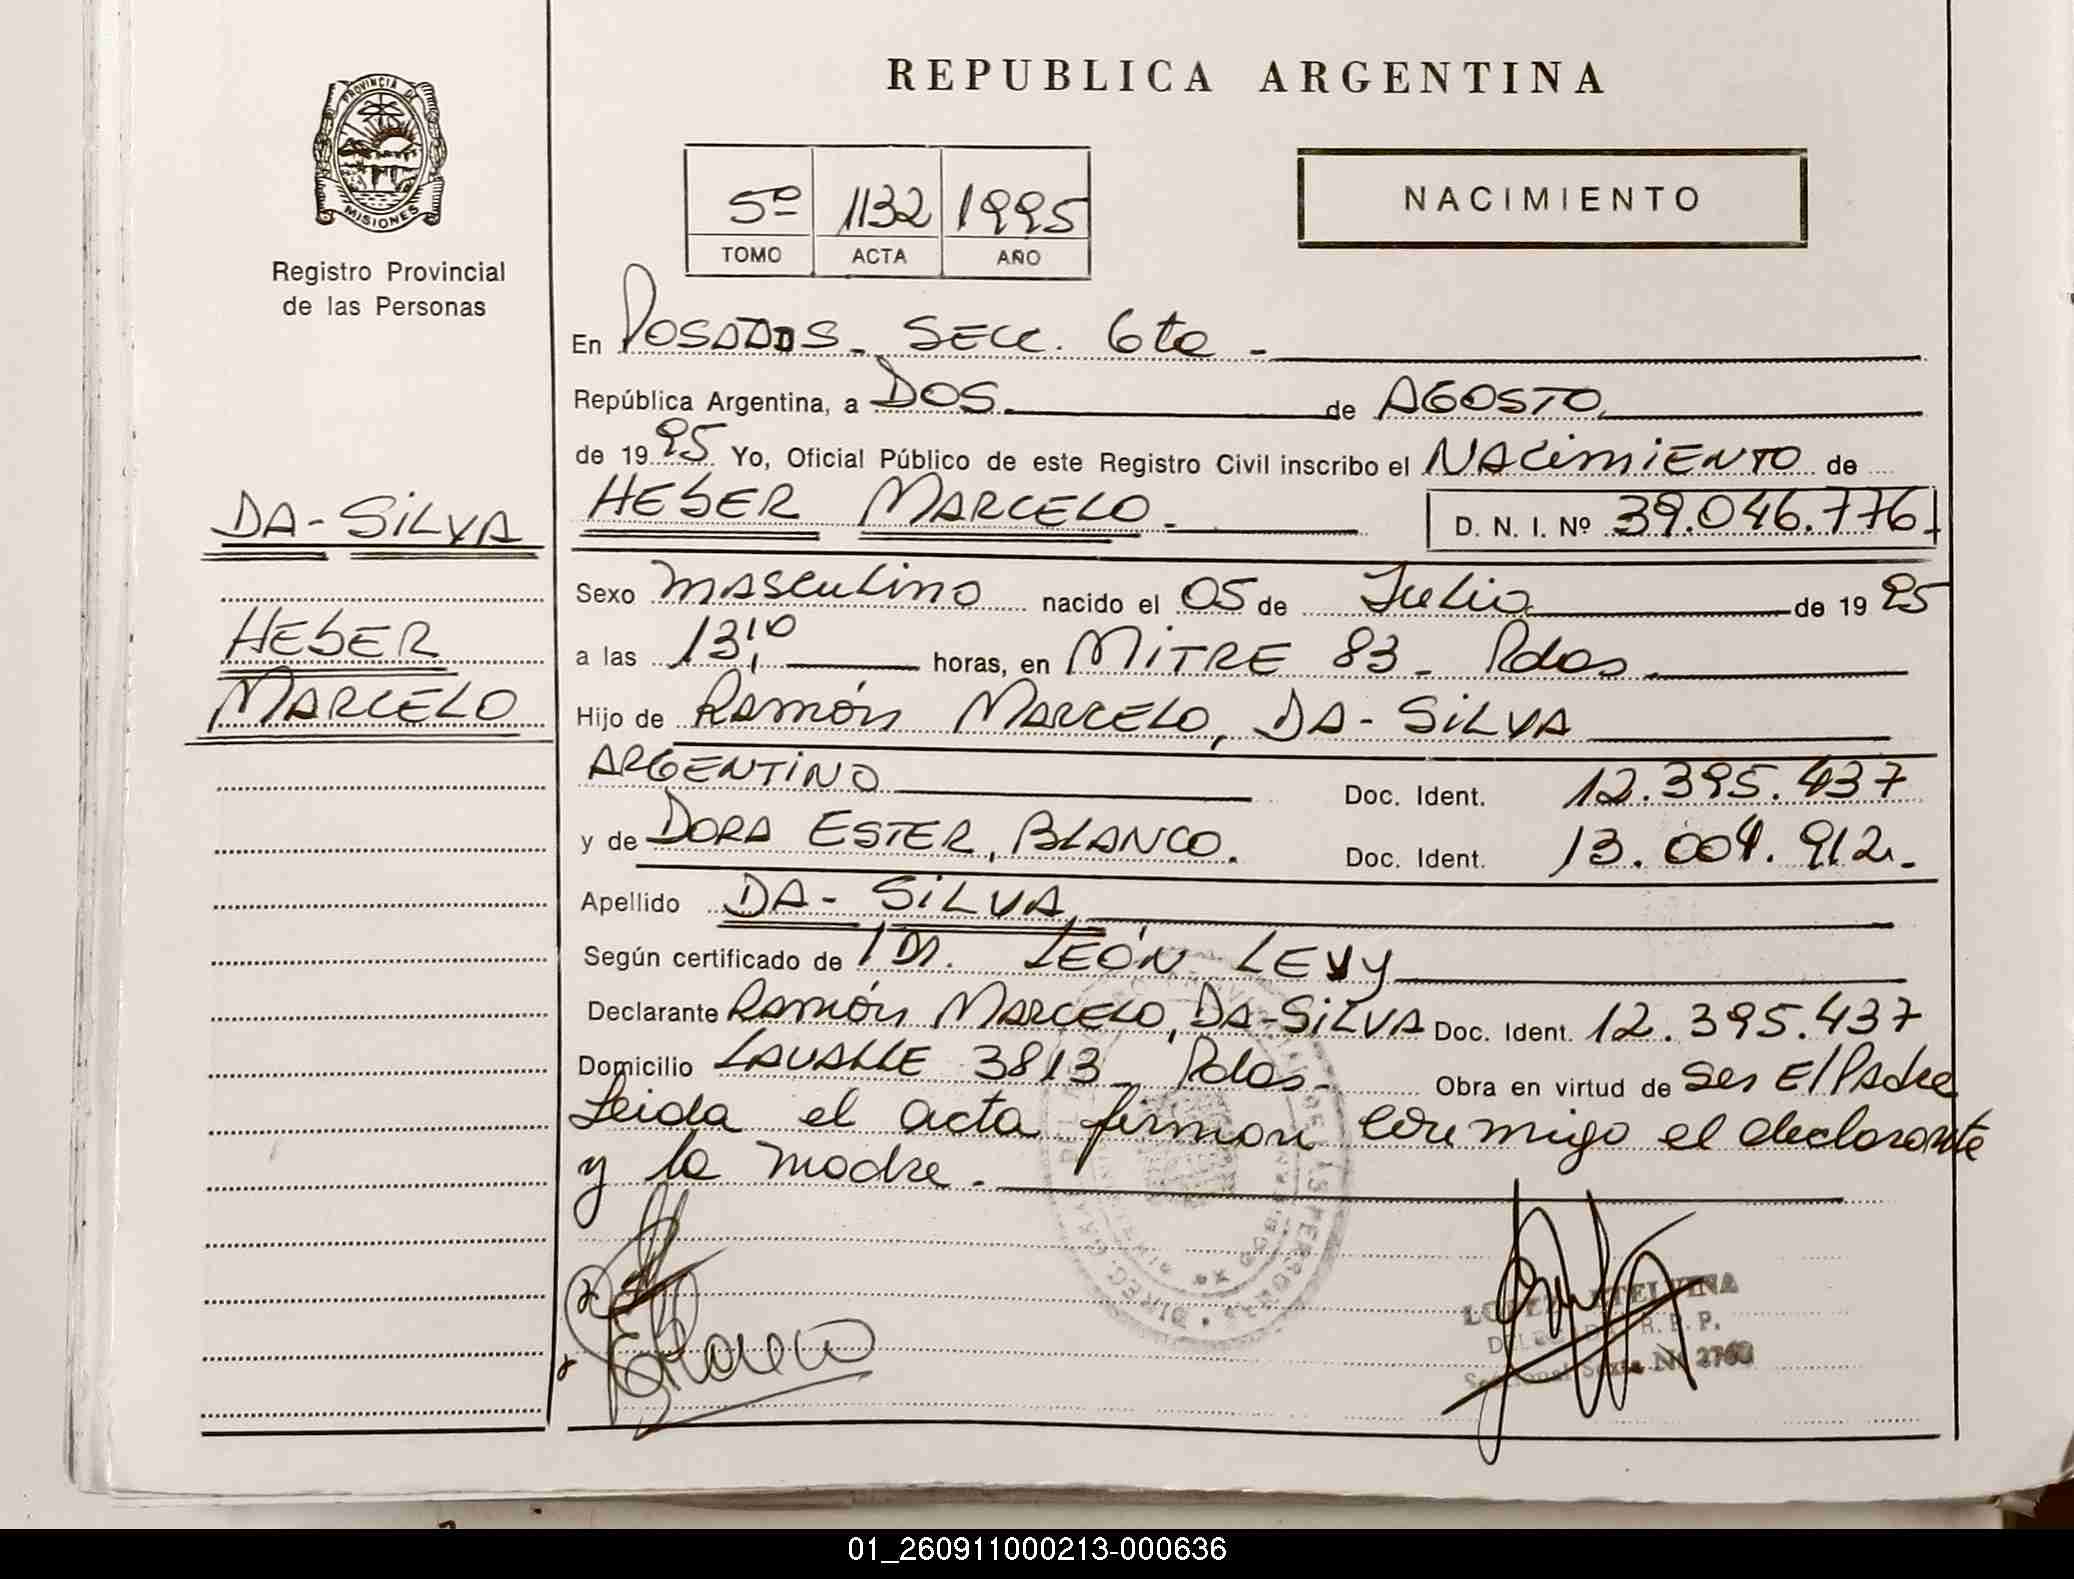 REPUBLICA ARGENTINA
PROVINCIA DE
MISIONES
Registro Provincial
de las Personas
5º 1132 1995
TOMO ACTA AÑO
NACIMIENTO
En Posadas - Secc. 6ta -
República Argentina, a DOS de AGOSTO
de 1995 Yo, Oficial Público de este Registro Civil inscribo el NACIMIENTO de
HEBER MARCELO.- D. N. I. Nº 39.046.776.
DA-SILVA
HEBER
MARCELO
Sexo masculino nacido el 05 de Julio de 1995
a las 13,10 horas, en MITRE 83 - Pdas.
Hijo de Ramón MARCELO, DA-SILVA
ARGENTINO Doc. Ident. 12.395.437
y de DORA ESTER, BLANCO. Doc. Ident. 13.004.912.-
Apellido DA-SILVA,
Según certificado de Dr. LEÓN LEVY
Declarante Ramón MARCELO, DA-SILVA Doc. Ident. 12.395.437
Domicilio LAVALLE 3813 - Pdas - Obra en virtud de ser El Padre
Leida el acta firman conmigo el declarante
y la madre.-
LOPEZ ETELVINA
R. P.
Seccional Sexta Nº 2760
01_260911000213-000636